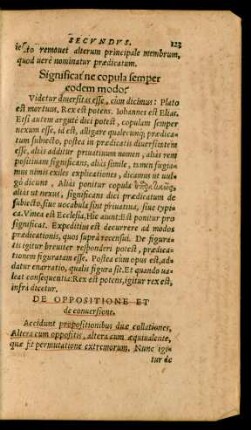 SECVNDVS. 123
iecto remouet alterum principale membrum,
quod uere nominatur prædicatum.
Significat ne copula semper
eodem modo?
Videtur diuersitas esse, cùm dicimus: Plato
est mortuus. Rex est potens. Iohannes est Elias.
Etsi autem argutè dici potest, copulam semper
nexum esse, id est, alligare qualecunque prædica-
tum subiecto, postea in prædicatis diuersitatem
esse, aliàs additur priuatiuum nomen, aliàs rem
positiuam significans, aliàs simile, tamen fugia-
mus nimis exiles explicationes, dicamus ut uul-
gò dicunt, Aliàs ponitur copula
aliàs ut nexus, significans dici prædicatum de
subiecto, siue uocabula sint priuatiua, siue typi-
ca. Vinea est Ecclesia, Hîc aiunt: Est ponitur pro
significat. Expeditius est decurrere ad modos
prædicationis, quos suprà recensui. De figura-
tis igitur breuiter responderi potest, prædica-
tionem figuratam esse. Postea cùm opus est, ad-
datur enarratio, qualis figura sit. Et quando ua-
leat consequentia: Rex est potens, igitur rex est,
infrà dicetur.
DE OPPOSITIONE ET
de conuersione.
Accidunt propositionibus duæ collationes,
Altera cum oppositis, altera cum æquiualente,
quæ fit permutatione extremorum. Nunc igi-
tur de